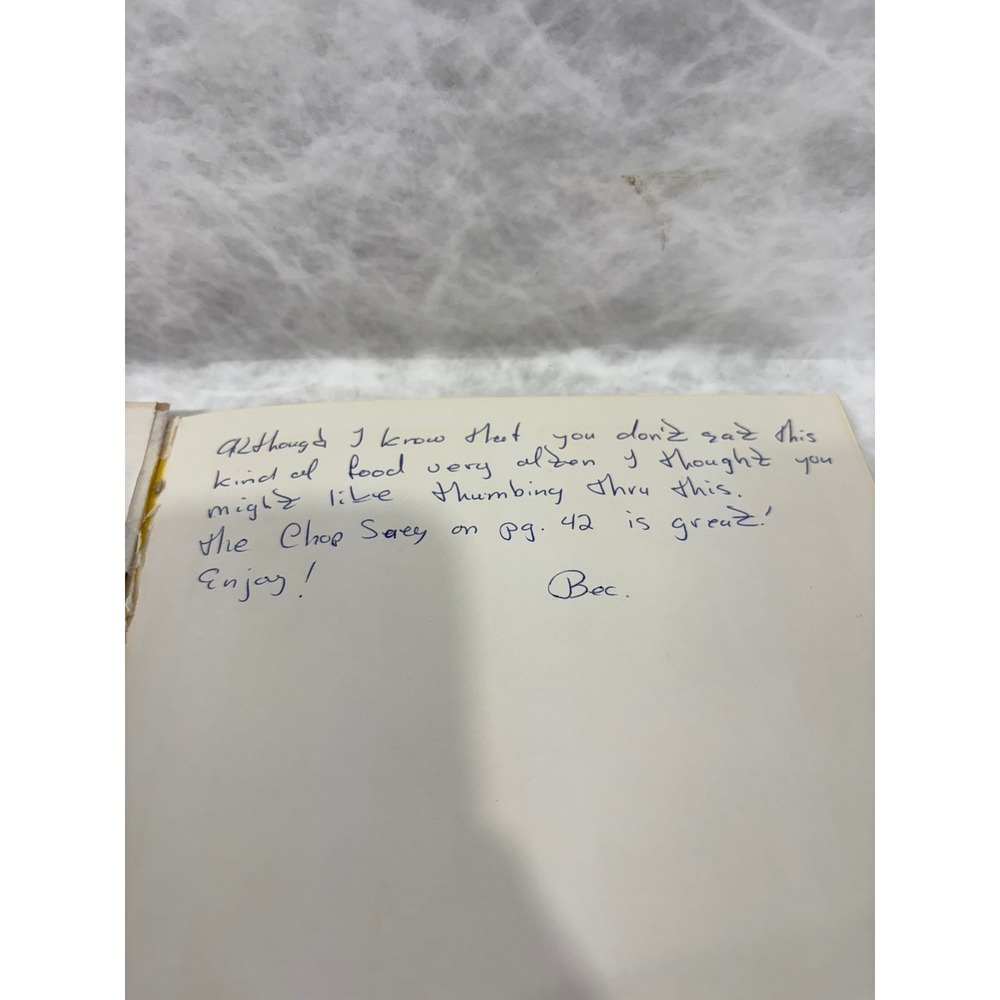 Although I know that you don't eat this
kind of food very often I thought you
might like thumbing thru this.
the Chop Suey on pg. 42 is great!
Enjoy! Bec.